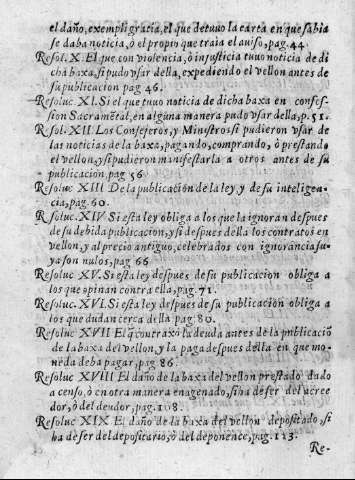 el daño, exempli gracia, el que detuvo la carta en que sabia
se daba noticia, ò el propio que traia el auiso, pag. 44
Resol. X. El que con violencia, ò injusticia tuuo noticia de di
cha baxa, si pudo vsar della, expediendo el vellon antes de
su publicacion pag 46.
Resoluc. XI. Si el que tuuo noticia de dicha baxa en confes-
sion Sacramẽtal, en algũna manera pudo vsar della, p. 51.
Resol. XII. Los Consejeros, y Ministros si pudieron vsar de
las noticias de la baxa, pagando, comprando, ò prestando
el vellon, y si pudieron manifestarla a otros antes de su
publicacion. pag 56
Resoluc XIII De la publicaciõn de la ley y de su inteligen-
cia, pag. 60.
Resoluc. XIV Si esta ley obliga a los que la ignoran despues
de su debida publicacion, y si despues della los contratos en
vellon, y al precio antiguo, celebrados con ignorancia su-
ya son nulos, pag 66
Resoluc XV. Si esta ley despues de su publicacion obliga a
los que opinan contra ella, pag. 71.
Resoluc. XVI. Si esta ley despues de su publicaciõn obliga a
los que dudan cerca della pag. 80.
Resoluc XVII El q̃ contraxo la deuda antes de la publicaciõ
de la baxa del vellon, y la paga despues della en que mo-
neda deba pagar, pag. 86.
Resoluc XVIII El daño de la baxa del vellon prestado dado
a censo, ò en otra manera enagenado, si ha de ser del acree
dor, ò del deudor, pag. 108.
Resoluc XIX El daño de la baxa del vellon depositado, si
ha de ser del depositario, ò del deponente, pag. 113.
Re-